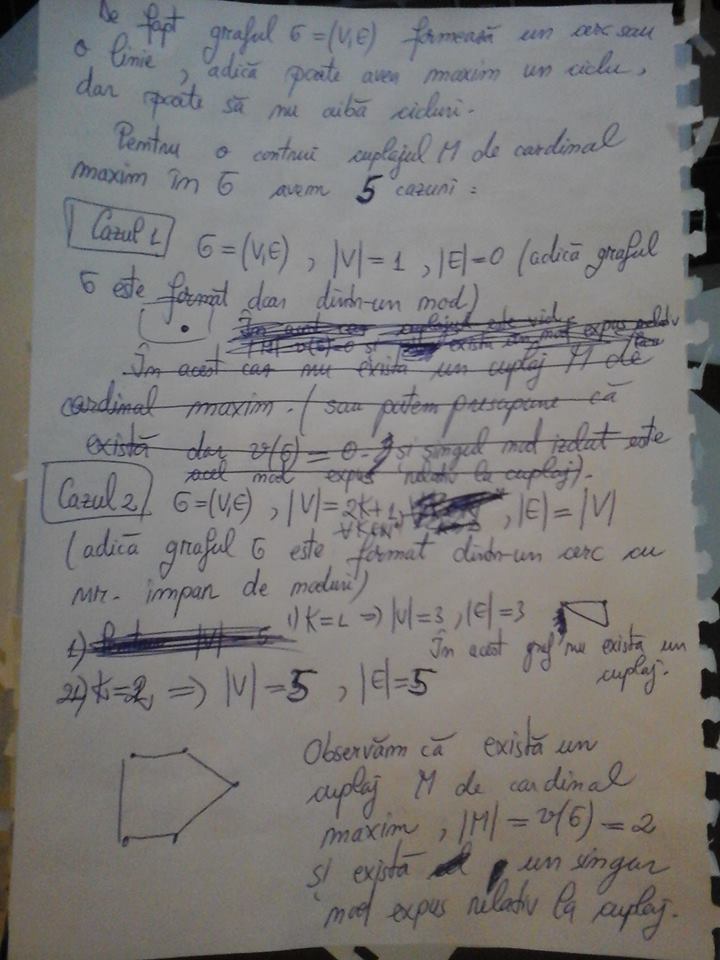 De fapt graful G=(V,E) formează un cerc sau
o linie, adică poate avea maxim un ciclu,
dar poate să nu aibă cicluri.
Pentru a contrui cuplajul M de cardinal
maxim în G avem 5 cazuri:
Cazul 1 G=(V,E), |V|=1, |E|=0 (adică graful
G este format doar dintr-un nod)
În acest caz cuplajul este vid
|M| v(G)=0 și există un nod expus relativ
În acest caz nu există un cuplaj M de
cardinal maxim. (sau putem presupune că
există dar v(G)=0 și singul nod izolat este
acel nod expus relativ la cuplaj).
Cazul 2 G=(V,E), |V|=2K+1, |E|=|V|
∀K∈N*
(adică graful G este format dintr-un cerc cu
nr. impar de noduri)
1) K=1 => |V|=3, |E|=3
1) În acest graf nu există un
cuplaj.
2) K=2 => |V|=5, |E|=5
Observăm că există un
cuplaj M de cardinal
maxim, |M|=v(G)=2
și există un singur
nod expus relativ la cuplaj.